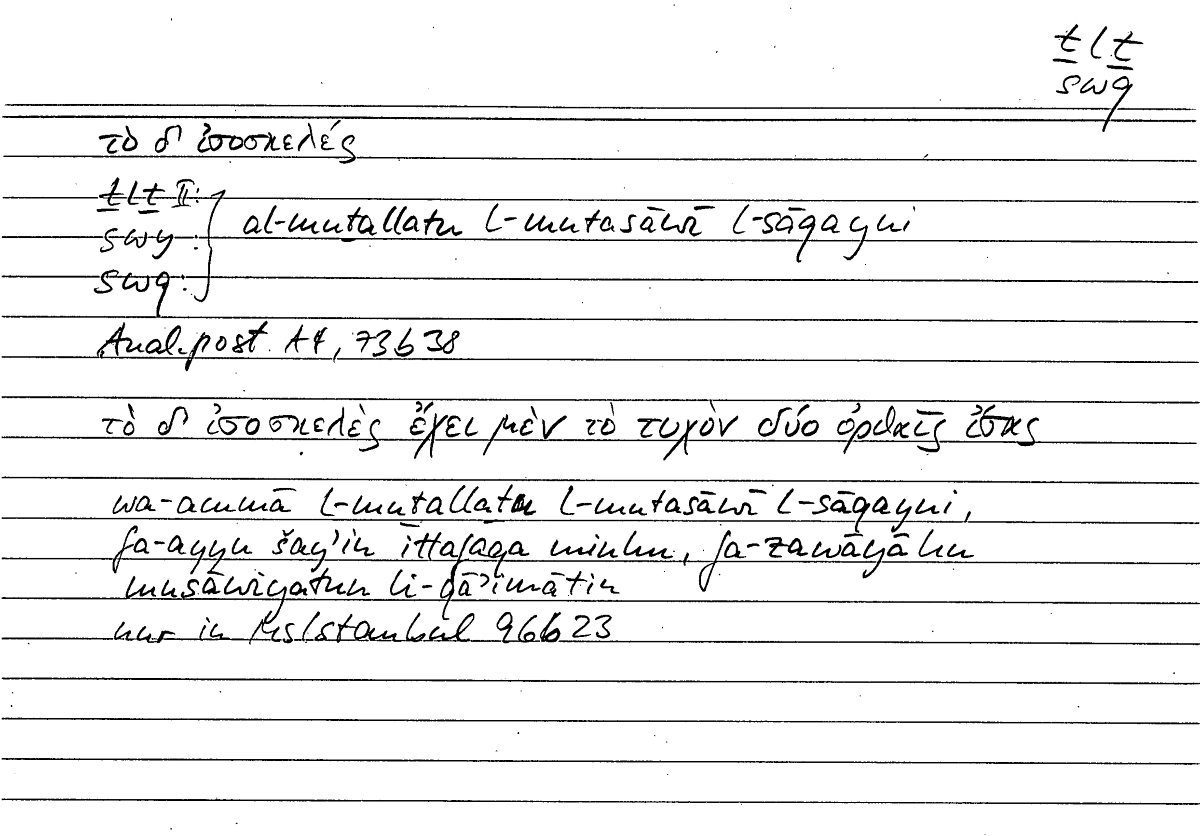 ṯlṯ
swq
τὸ δ' ἰσοσκελές
ṯlṯ II:
swy:
swq:
al-muṯallaṯu l-mutasāwī l-sāqayni
Anal. post. A4, 73b38
τὸ δ' ἰσοσκελὲς ἔχει μὲν τὸ τυχὸν δύο ὀρθαῖς ἴσας
wa-ammā l-mutallatu l-mutasāwī l-sāqayni,
fa-ayyu šay'in ittafaqa minhu, fa-zawāyāhu
musāwiyatun li-qā'imātin
nur in Ms Istanbul 96b23